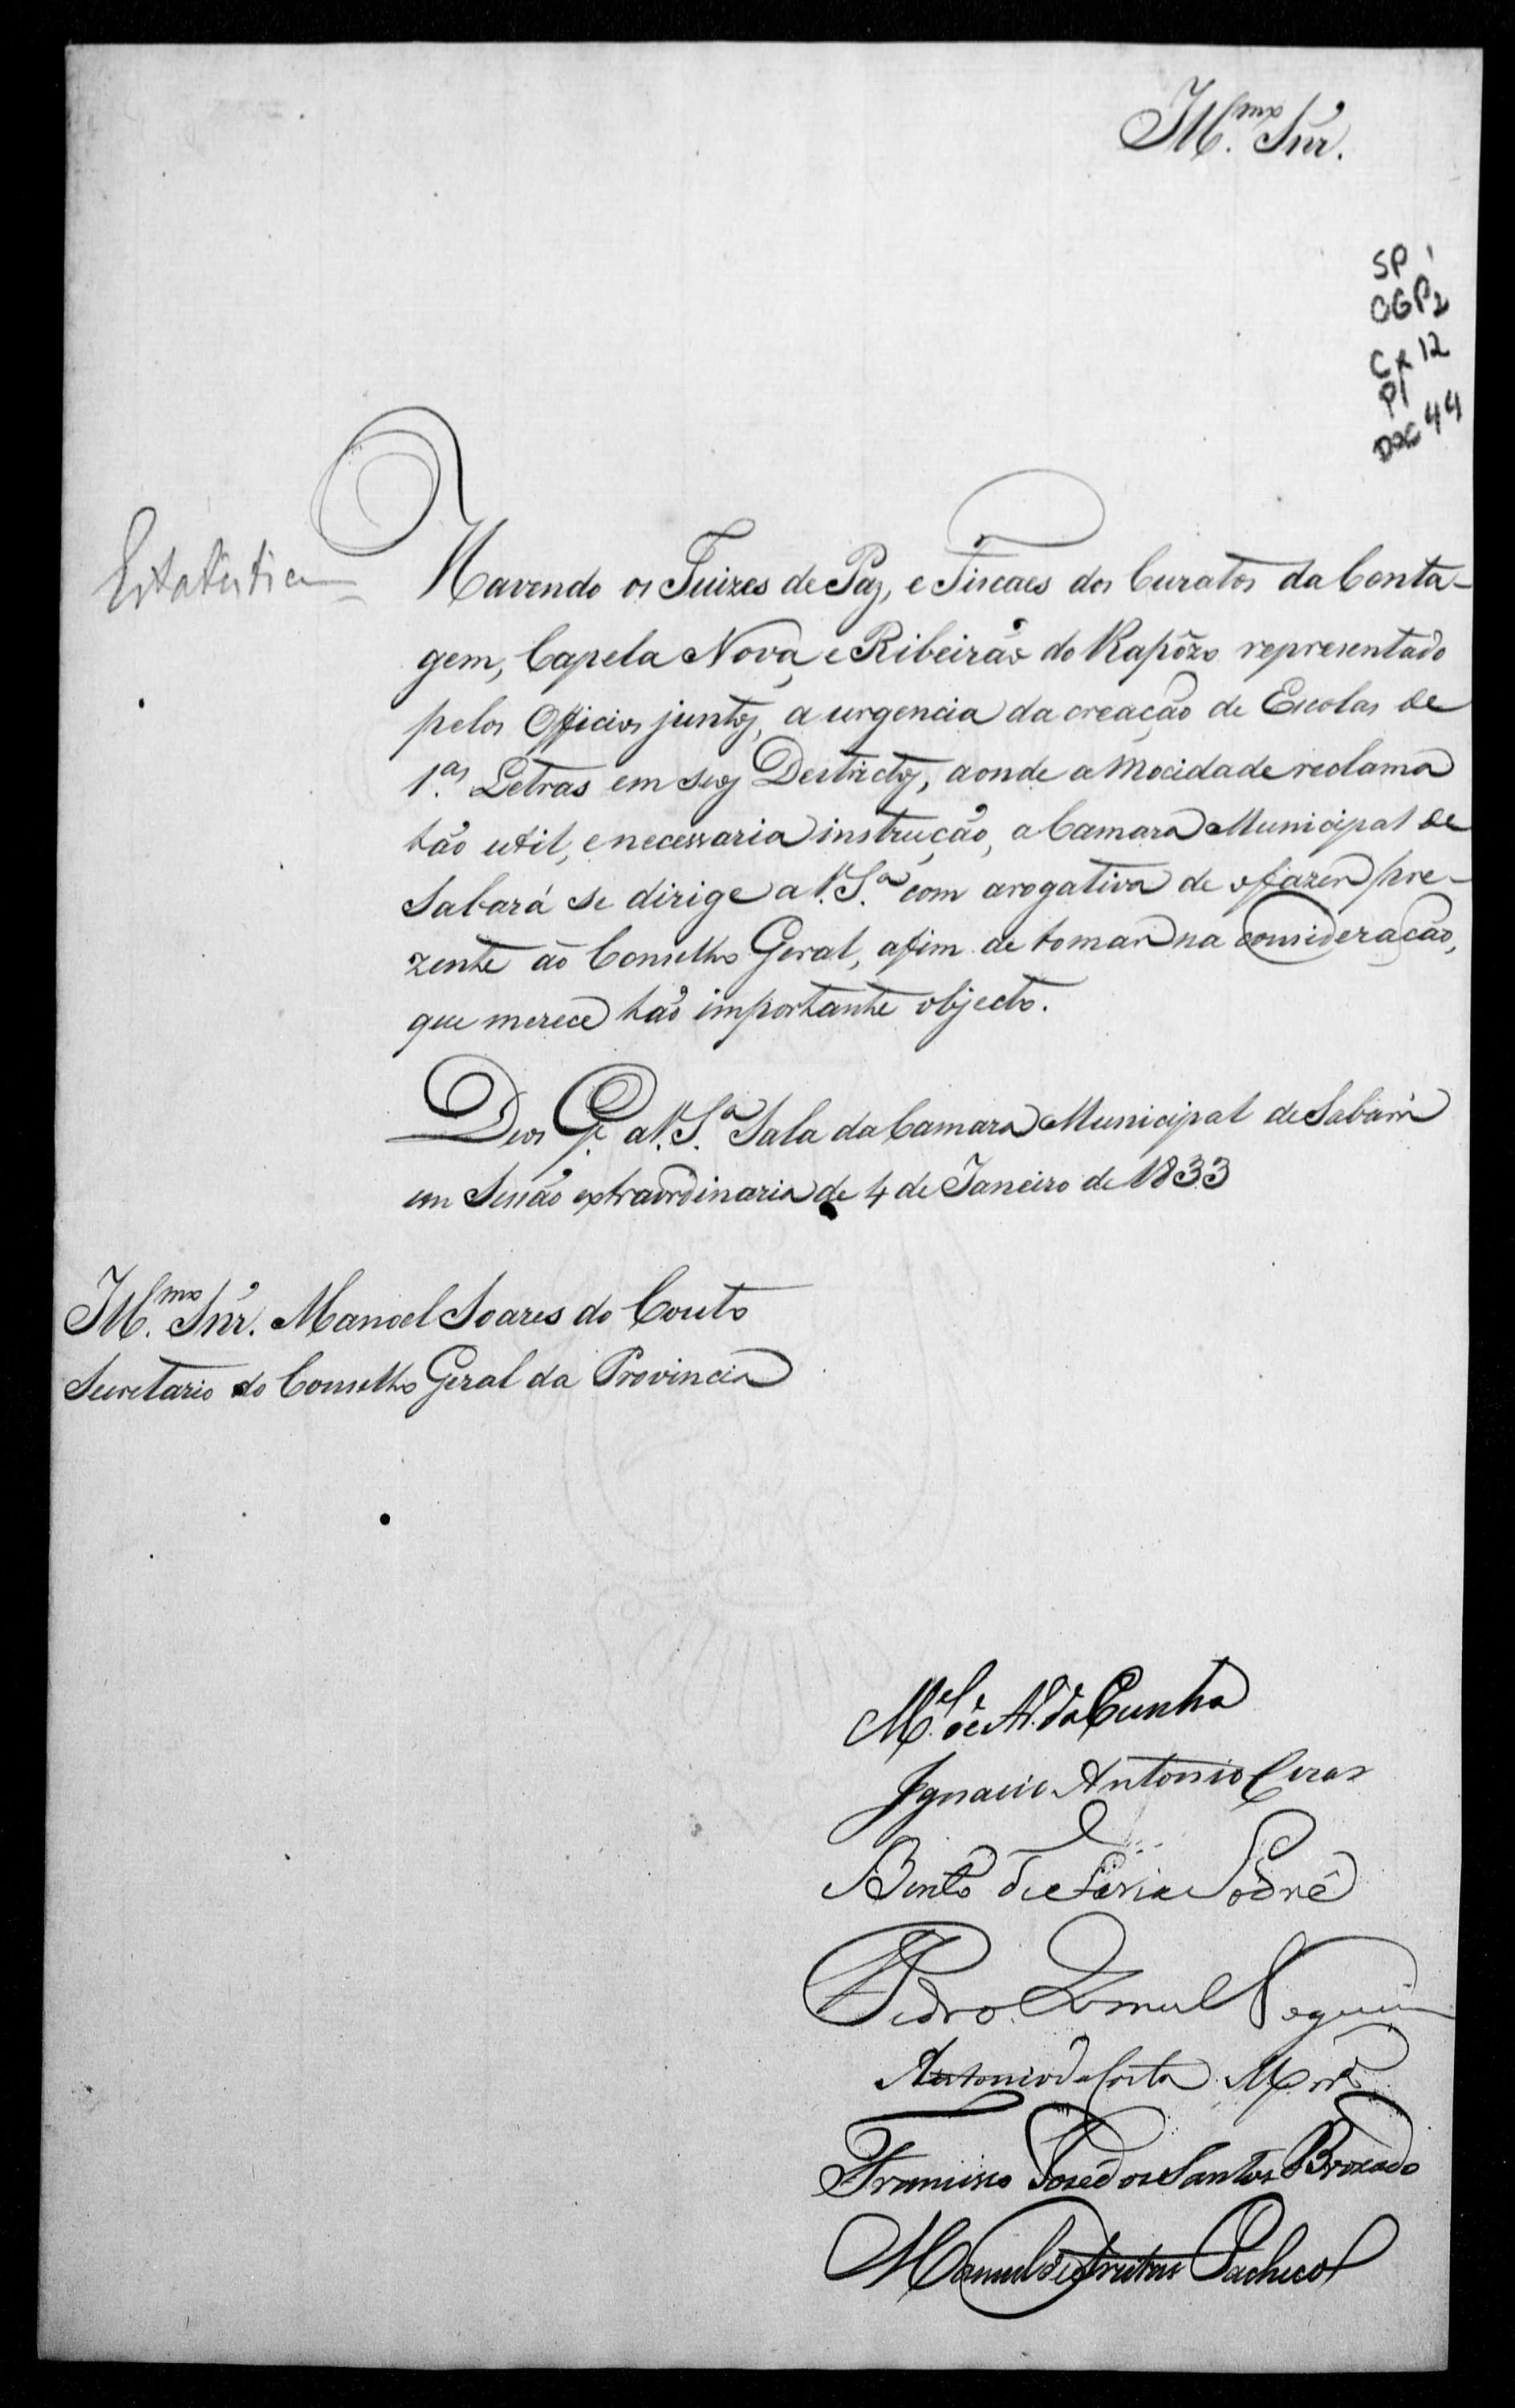 Ill.mo Snr.
SP 1
CGP2
Cx 12
P1
Doc 44
Estatistica
Havendo os Juizes de Paz, e Fiscaes dos Curatos da Conta-
gem, Capela Nova, e Ribeirão do Rapôzo representado
pelos Officios juntos, a urgencia da creação de Escolas de
1.as Letras em seos Destrictos, aonde a Mocidade reclama
tão util, e necessaria instrucção, a Camara Municipal de
Sabará se dirige a V.S.a com a rogativa de o fazer pre-
zente ao Conselho Geral, afim de tomar na consideração,
que merece tão importante objecto.
Deos G. a V.S.a Sala da Camara Municipal de Sabará
em Sessão extraordinaria de 4 de Janeiro de 1833
Ill.mo Snr. Manoel Soares do Couto
Secretario do Conselho Geral da Provincia
M.el de da Cunha
Ignacio Antonio Cezar
Bento de Faria Sodré
Pedro Gomes Nogueira
Antonio da Costa
Francisco José dos Santos Brochado
Manuel de Freitas Pacheco